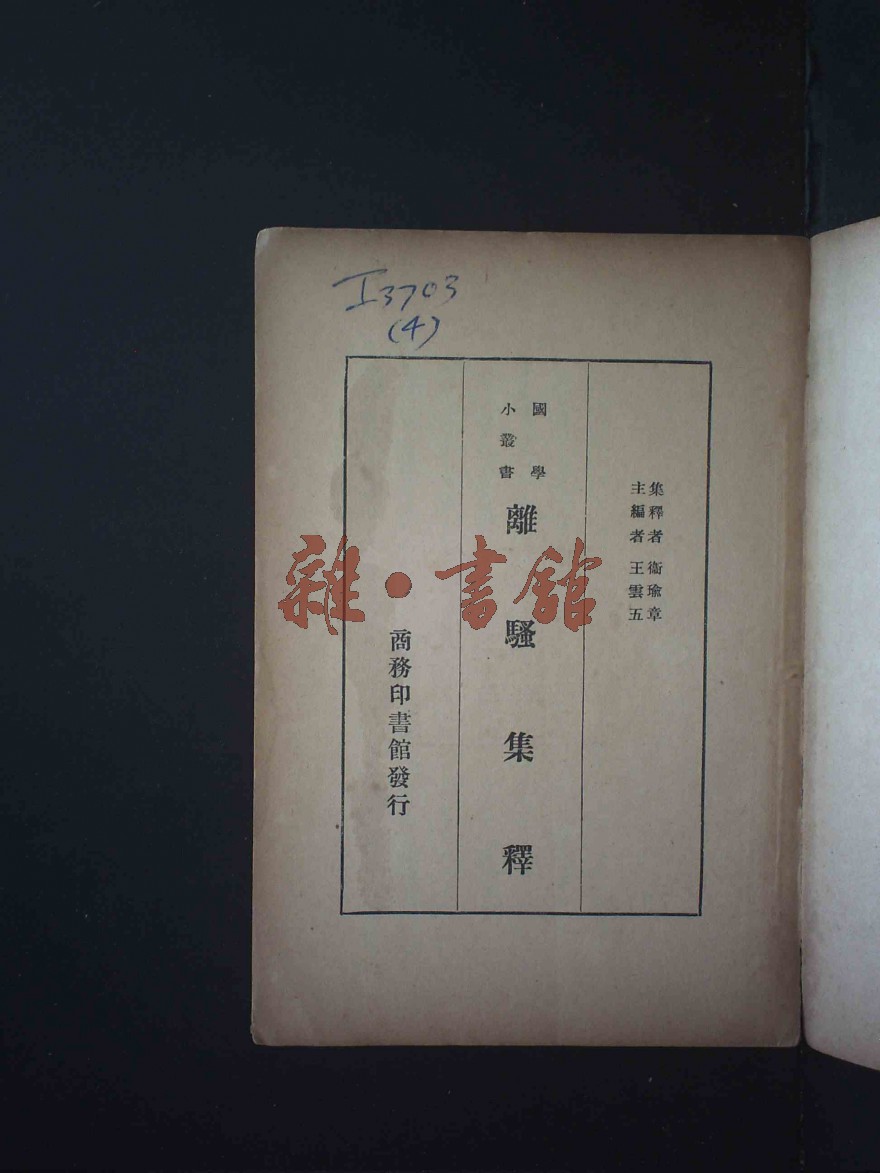 I3703
(4)
集釋者 衞瑜章
主編者 王雲五
國學
小叢書
離騷集釋
商務印書館發行
雜·書館